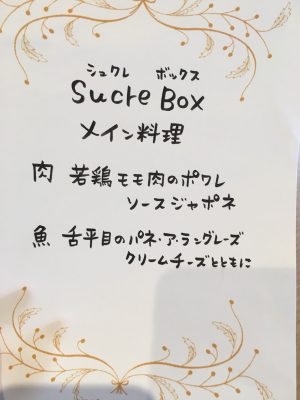 シュクレ ボックス
Sucre Box
メイン料理
肉 若鶏モモ肉のポワレ
ソースジャポネ
魚 舌平目のパネ・ア・ラングレーズ
クリームチーズとともに